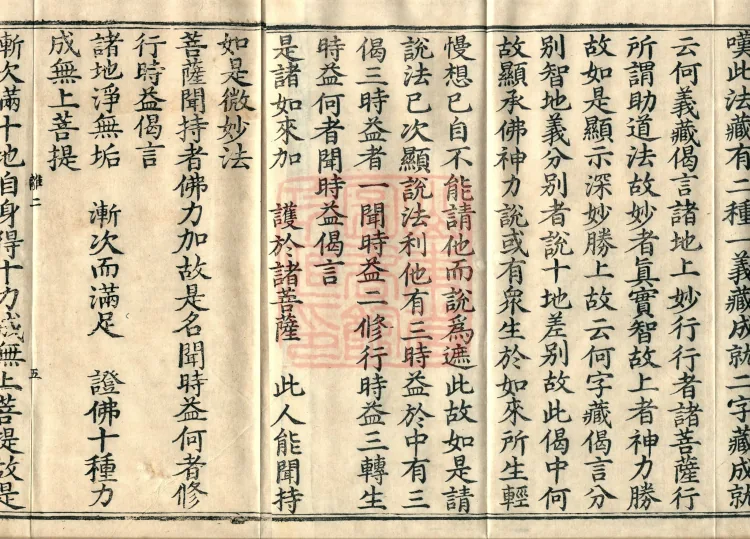 嘆此法藏有二種一義藏成就二字藏成就
云何義藏偈言諸地上妙行行者諸菩薩行
所謂助道法故妙者眞實智故上者神力勝
故如是顯示深妙勝上故云何字藏偈言分
別智地義分別者說十地差別故此偈中何
故顯承佛神力說或有衆生於如來所生輕
慢想已自不能請他而說為遮此故如是請
說法已次顯說法利他有三時益於中有三
偈三時益者一聞時益二修行時益三轉生
時益何者聞時益偈言
是諸如來加 護於諸菩薩 此人能聞持
如是微妙法
菩薩聞持者佛力加故是名聞時益何者修
行時益偈言
諸地淨無垢 漸次而滿足 證佛十種力
成無上菩提
離二 五
漸次滿十地自身得十力成無上菩提故是